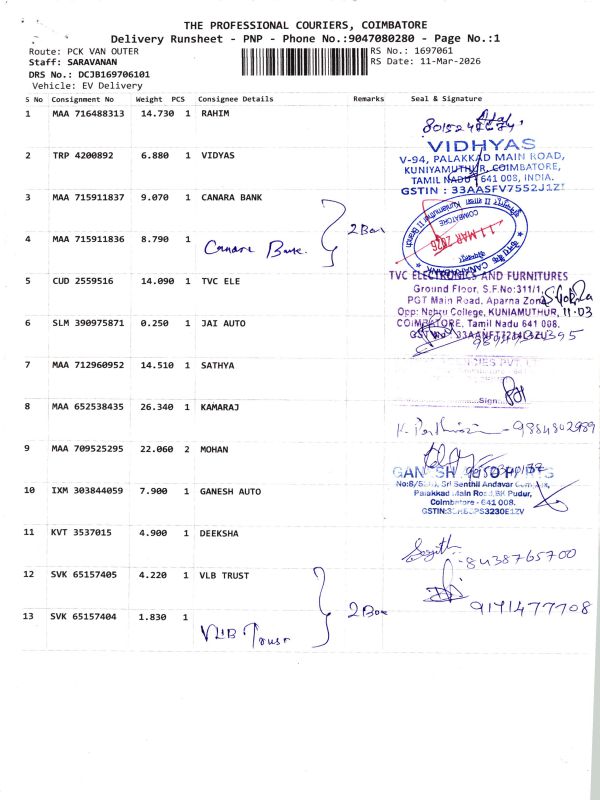 THE PROFESSIONAL COURIERS, COIMBATORE
Delivery Runsheet - PNP - Phone No.:9047080280 - Page No.:1
Route: PCK VAN OUTER
RS No.: 1697061
Staff: SARAVANAN
RS Date: 11-Mar-2026
DRS No.: DCJB169706101
Vehicle: EV Delivery
S No Consignment No Weight PCS Consignee Details Remarks Seal & Signature
1 MAA 716488313 14.730 1 RAHIM
2 TRP 4200892 6.880 1 VIDYAS
VIDHYAS
V-94, PALAKKAD MAIN ROAD,
KUNIYAMUTHUR, COIMBATORE,
TAMIL NADU 641 008, INDIA.
GSTIN : 33AASFV7552J1Z
3 MAA 715911837 9.070 1 CANARA BANK
2 Box
11 MAR 2026
COIMBATORE
4 MAA 715911836 8.790 1
Canara Bank.
5 CUD 2559516 14.090 1 TVC ELE
TVC ELECTRONICS AND FURNITURES
Ground Floor, S.F.No:311/1,
PGT Main Road, Aparna Zone
Opp: Nehru College, KUNIAMUTHUR, 11.03
COIMBATORE, Tamil Nadu 641 008.
6 SLM 390975871 0.250 1 JAI AUTO
7 MAA 712960952 14.510 1 SATHYA
Sign
8 MAA 652538435 26.340 1 KAMARAJ
9884802989
9 MAA 709525295 22.060 2 MOHAN
10 IXM 303844059 7.900 1 GANESH AUTO
Palakkad Main Road, BK Pudur,
Coimbatore - 641 008.
11 KVT 3537015 4.900 1 DEEKSHA
8438765700
12 SVK 65157405 4.220 1 VLB TRUST
2 Box
9171477708
13 SVK 65157404 1.830 1
VLB Trust